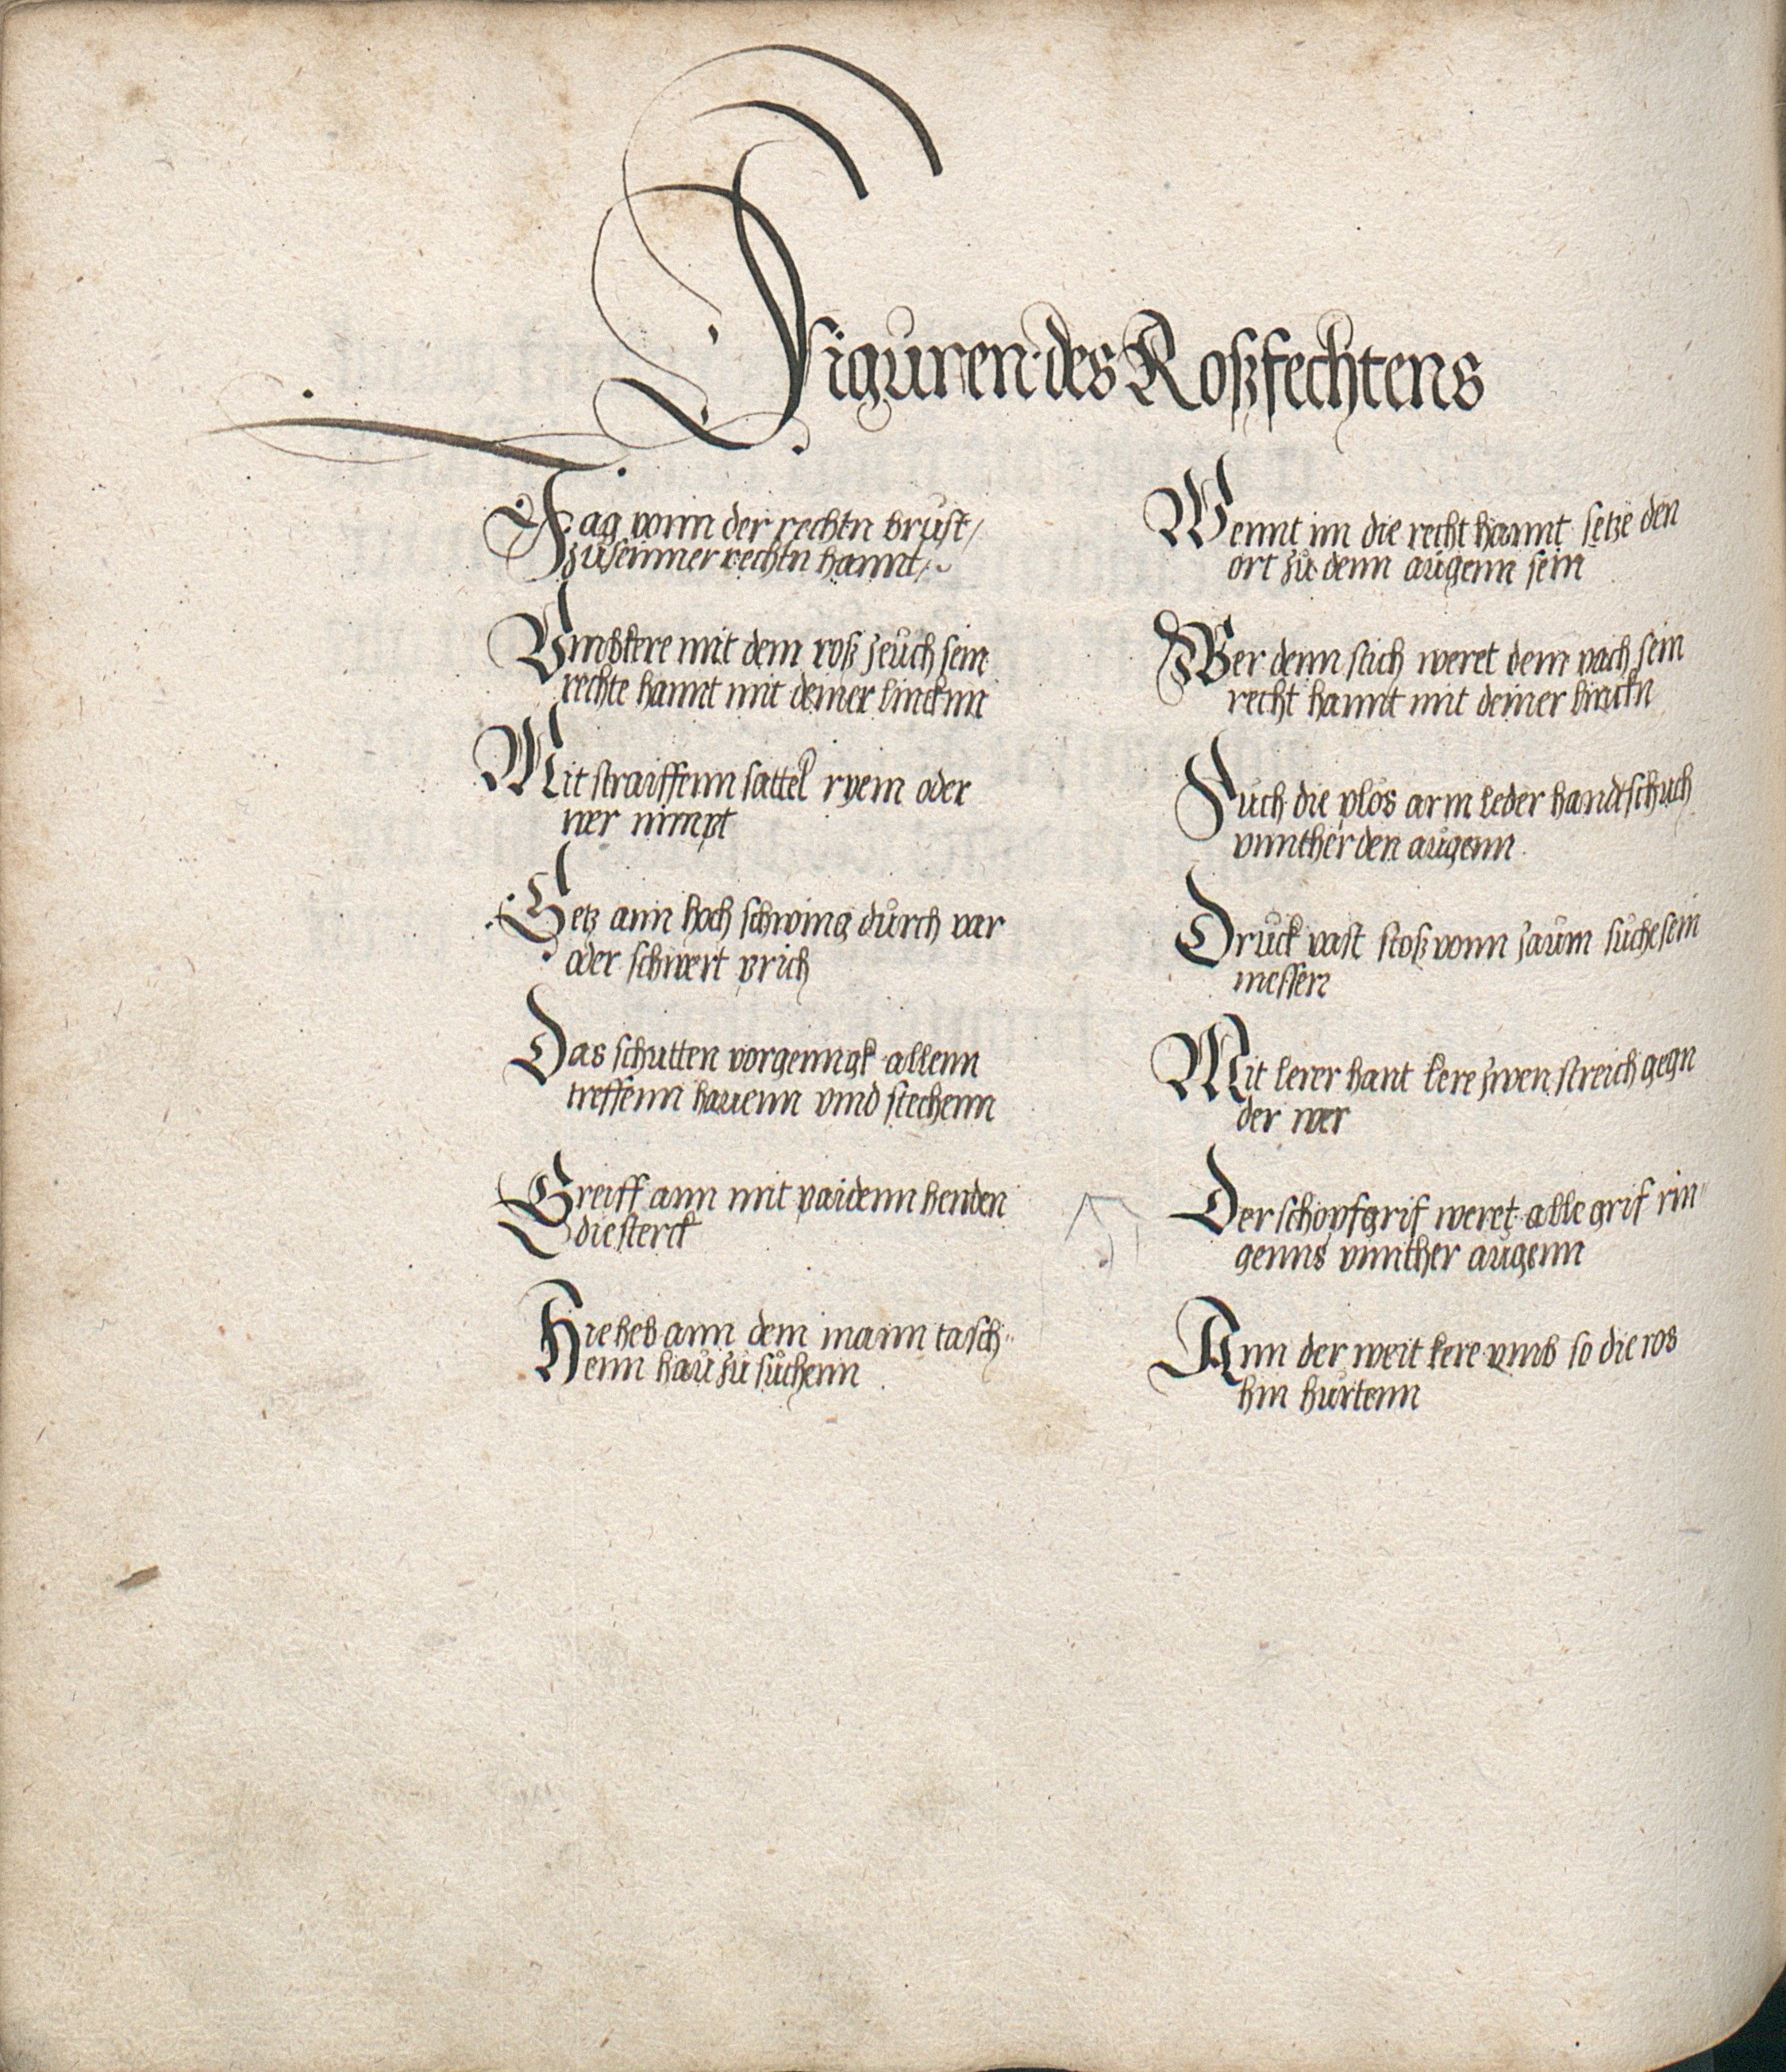 Figuren des Roßfechtens
Jag vonn der rechtn brust /
zu seinner rechtn hannt /
Vmbkere mit dem roß zeuch sein
rechte hannt mit deiner lincknn
Mit straiffenn sattel ryem oder
wer nimpt
Setz ann hoch schwing durch var
oder schwert prich
Das schutten vorgenngk allenn
treffenn hauenn vnnd stechenn
Greiff ann mit paidenn henden
die sterck
Hie heb ann dem mann tasch-
enn hau zu suchenn
Wennt im die recht hannt setze den
ort zu denn augenn sein
Wer denn stich weret dem vach sein
recht hannt mit deiner linckn
Such die plos arm leder handtschuch
vnnther den augenn
Druck vast stoß vonn zaum suche sein
messern
Mit lerer hant lere zwen streich gegn
der wer
Der schopfgrif weret alle grif rin-
genns vnnther augenn
Ann der weit kere vmb so die ros
hin hurtenn